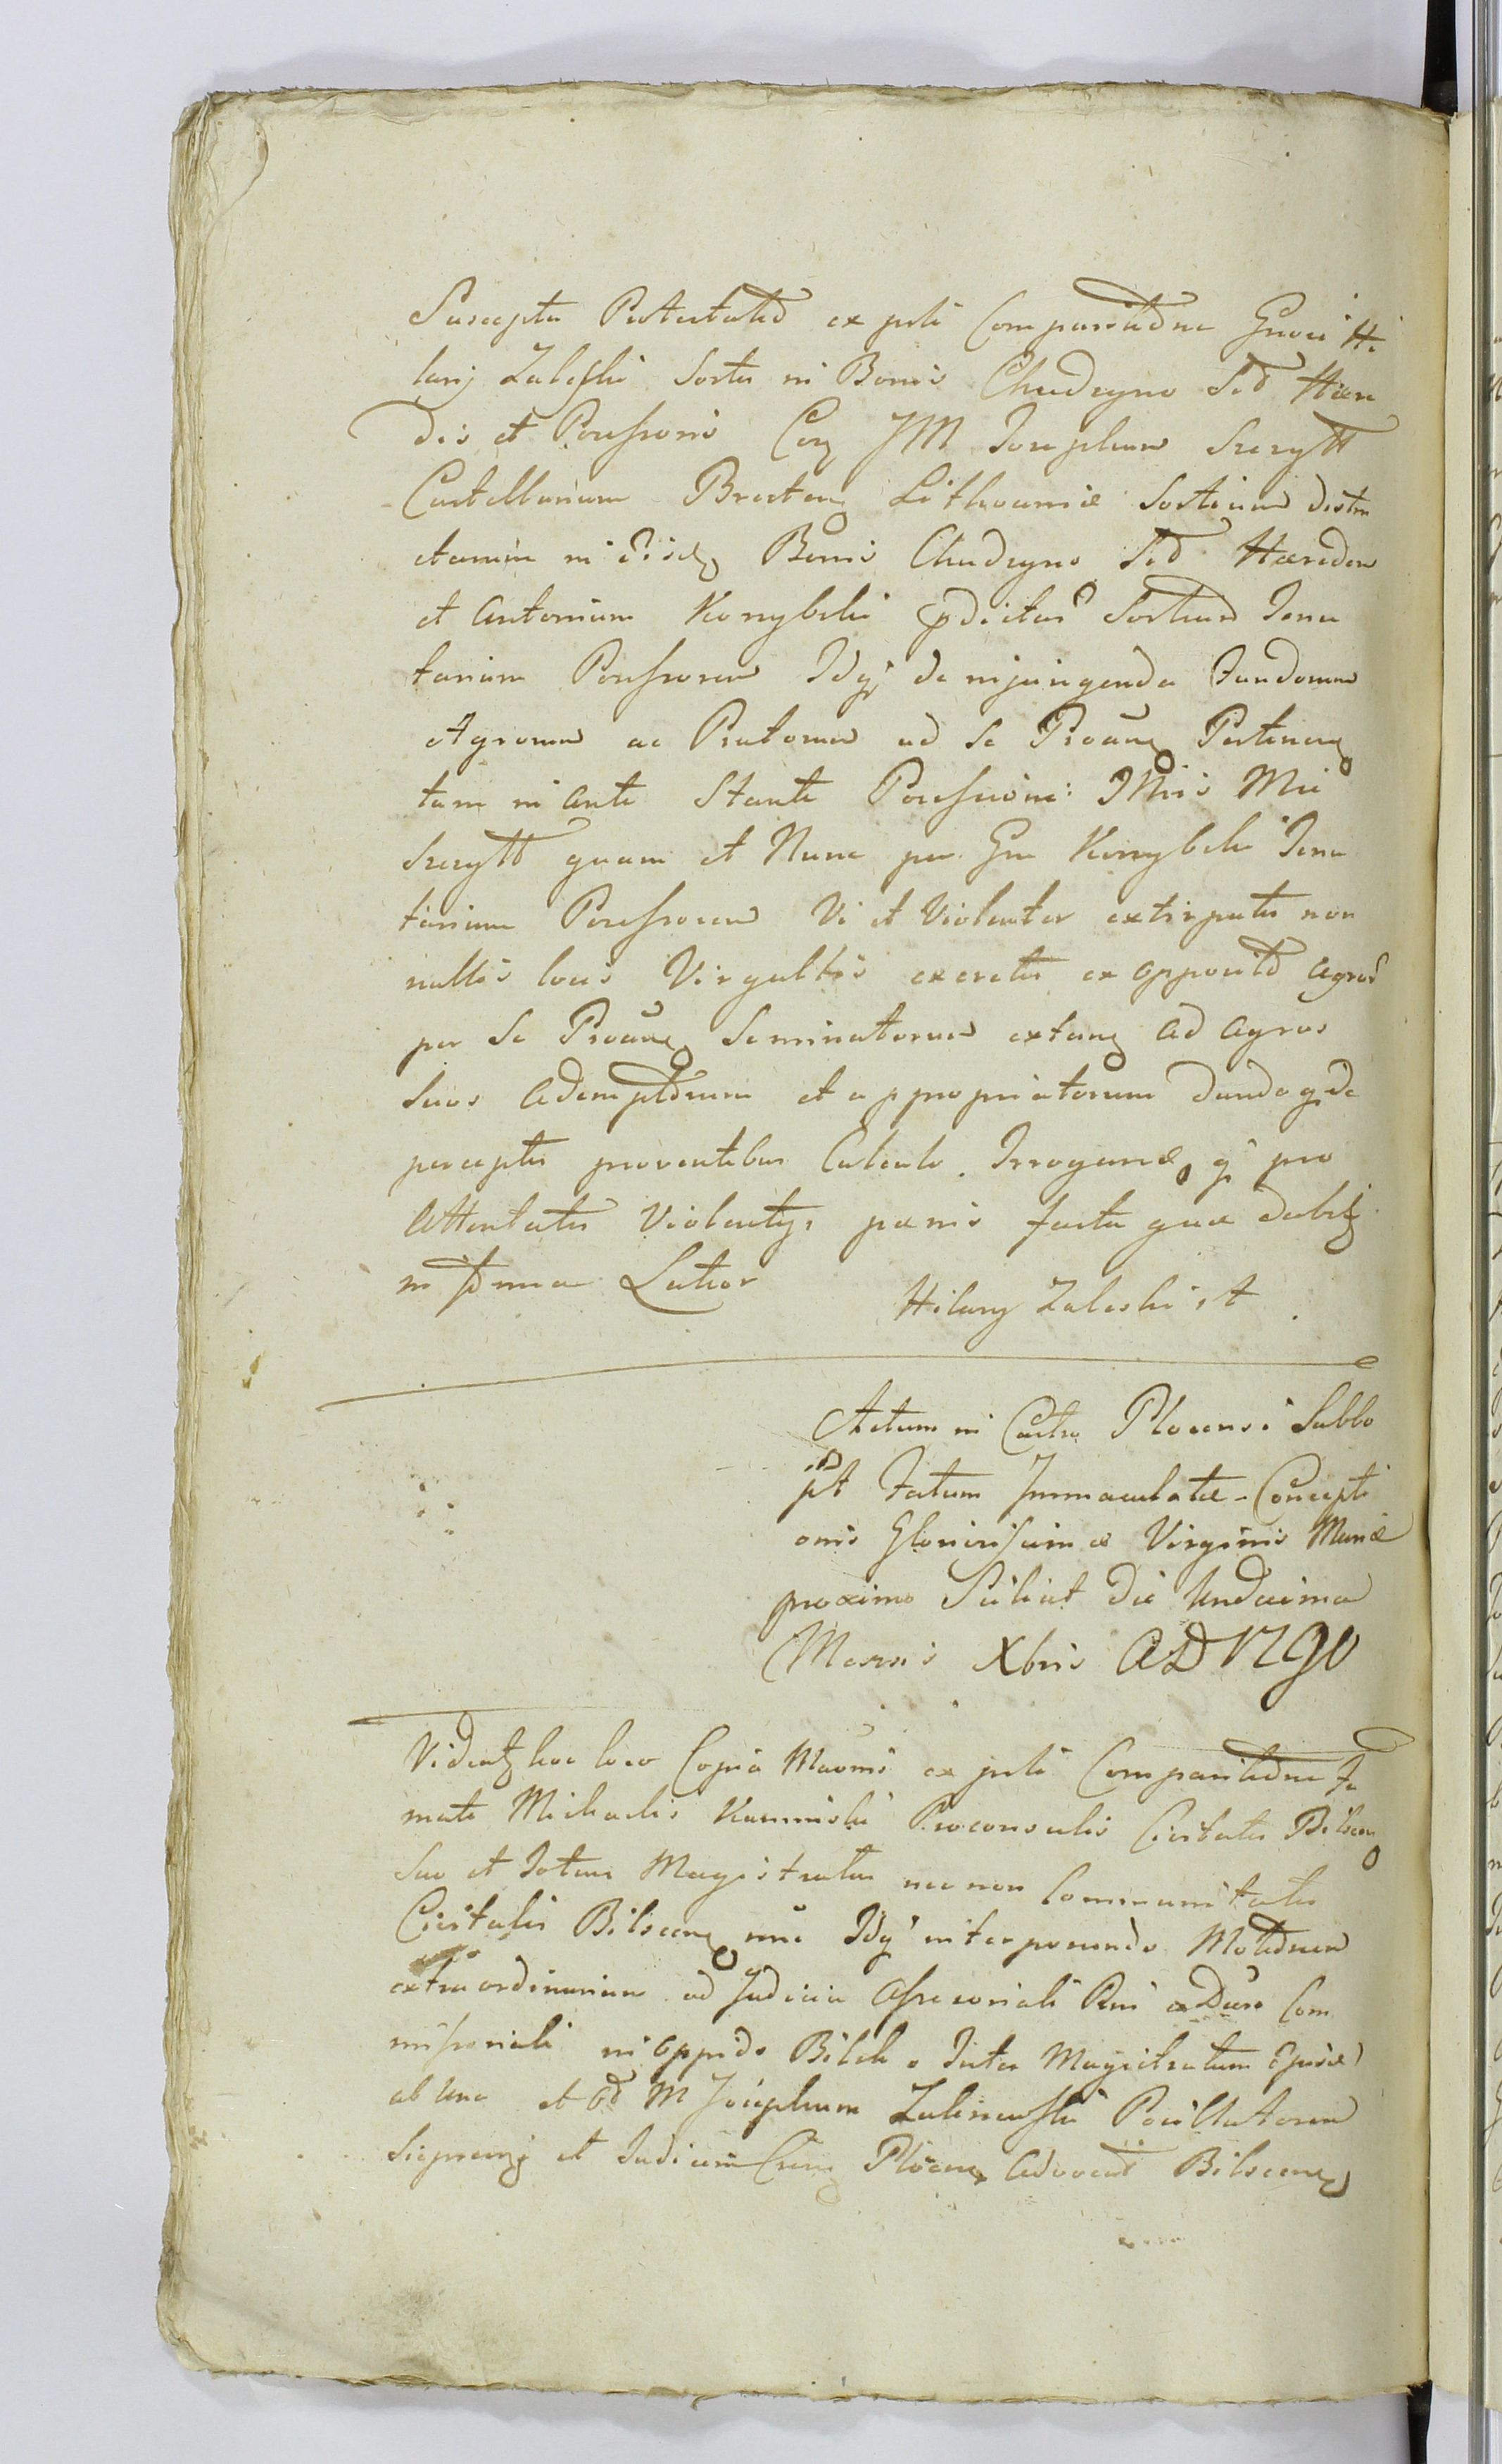 Suscepta Ptestatio ex psti Comparitione Gnosi Hi
larij Zaleski Sortis in Bonis Chudzyno Sitd Hære
dis et Possessoris Cog JM Josephum Szczytt
Castellanum Bresten Lithvaniæ Sortium distin
ctarum in iisdg Bonis Chudzyno Sitd Hæredem
et Antonium Korzybski pdictar Sortium Tenu
tarium Possessorem Idq de injungenda Fundorum
Agrorum ac Pratorum ad Se Ptoan Pertinen
tam in ante Stante Possessione JMis Mci
Szczytt quam et Nunc per Gm Korzybski Tenu
tarium Possessorem Vi et Violenter extirpatis non
nullis locis Virgultis excretis ex opposito agror
per Se Ptoan Seminatorum extan ad Agros
Suos Ademptorum et appropriatorum dandog de
perceptis proventibus Calculo Irrogan q pro
Attentatis Violentijs pænis facta quæ dabit
in forma Latior Hilary Zaleski st
Actum in Castro Plocensi Sabbo
pt Festum Immaculatæ Concepti
onis Gloriosissimæ Virginis Mariæ
proximo Scilicet Die Undecima
Mensis Xbris AD 1790
Videat hoc loco Copia Maonis ex psti Comparitione Fa
mati Michaelis Kaminski Proconsulis Civitatis Bilscen
Suo et Totius Magistratus nec non Communitatis
Civitatis Bilscen nnie Idq interponendo Motionem
extraordinariam ad Judicia Assessorialia Rni ex Dcto Com
missoriali in Oppido Bilsk Inter Magistratum Episce
ab una et Gd M Josephum Zalinewski Pocillatorem
Sieprcen et Judicem Cren Plocen Advocat Bilscen